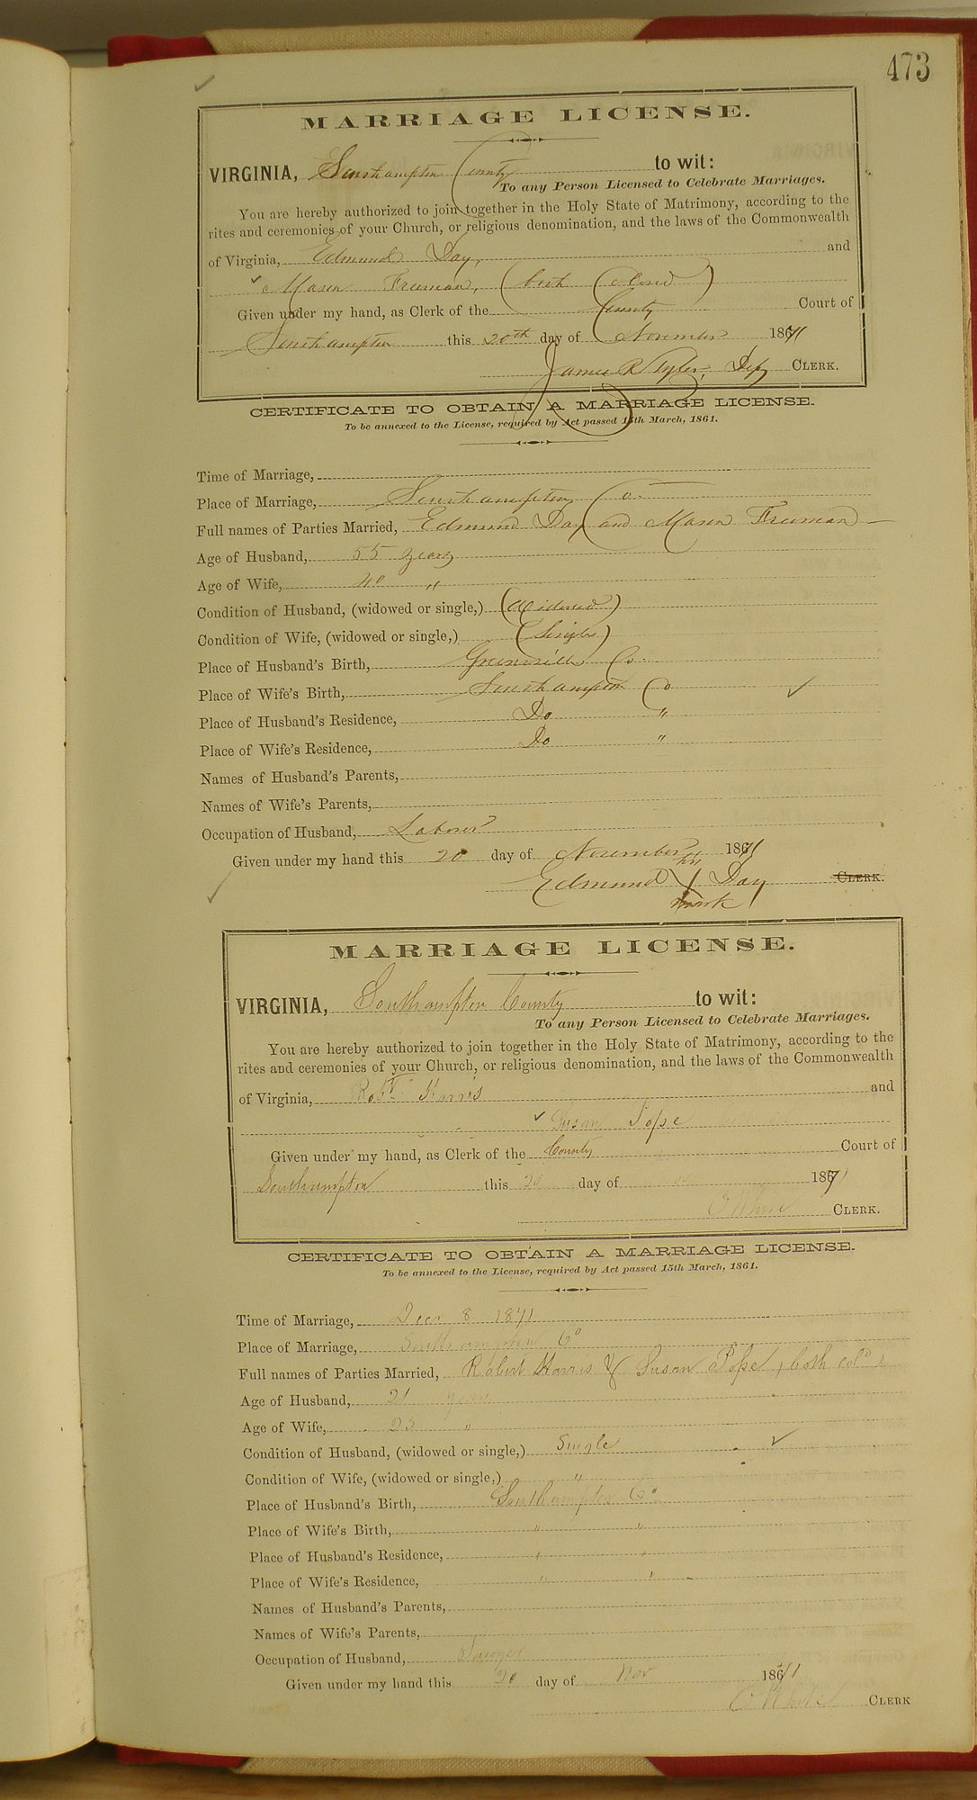 473
MARRIAGE LICENSE.
VIRGINIA, Southampton County to wit:
To any Person Licensed to Celebrate Marriages.
You are hereby authorized to join together in the Holy State of Matrimony, according to the
rites and ceremonies of your Church, or religious denomination, and the laws of the Commonwealth
of Virginia, Edmund Day, and
Mason Freeman, (both Cold)
Given under my hand, as Clerk of the County Court of
Southampton this 20th day of November 1871
James R Tyler, Dep CLERK.
CERTIFICATE TO OBTAIN A MARRIAGE LICENSE.
To be annexed to the License, required by Act passed 15th March, 1861.
Time of Marriage,
Place of Marriage, Southampton Co.
Full names of Parties Married, Edmund Day and Mason Freeman
Age of Husband, 55 years
Age of Wife, 40 "
Condition of Husband, (widowed or single,) (Widowed)
Condition of Wife, (widowed or single,) (Single)
Place of Husband's Birth, Greensville Co.
Place of Wife's Birth, Southampton Co
Place of Husband's Residence, Do "
Place of Wife's Residence, Do "
Names of Husband's Parents,
Names of Wife's Parents,
Occupation of Husband, Laborer
Given under my hand this 20 day of November 1871
his
Edmund X Day CLERK.
mark
MARRIAGE LICENSE.
VIRGINIA, Southampton County to wit:
To any Person Licensed to Celebrate Marriages.
You are hereby authorized to join together in the Holy State of Matrimony, according to the
rites and ceremonies of your Church, or religious denomination, and the laws of the Commonwealth
of Virginia, Robt Harris and
Susan Pope
Given under my hand, as Clerk of the County Court of
Southampton this 20 day of 1871
White CLERK.
CERTIFICATE TO OBTAIN A MARRIAGE LICENSE.
To be annexed to the License, required by Act passed 15th March, 1861.
Time of Marriage, Decr 8 1871
Place of Marriage, Southampton Co
Full names of Parties Married, Robert Harris & Susan Pope, both cold
Age of Husband, 21 years
Age of Wife, 23 "
Condition of Husband, (widowed or single,) Single
Condition of Wife, (widowed or single,) "
Place of Husband's Birth, Southampton Co
Place of Wife's Birth, " "
Place of Husband's Residence, " "
Place of Wife's Residence, " "
Names of Husband's Parents,
Names of Wife's Parents,
Occupation of Husband,
Given under my hand this 20 day of Nov 1871
White CLERK